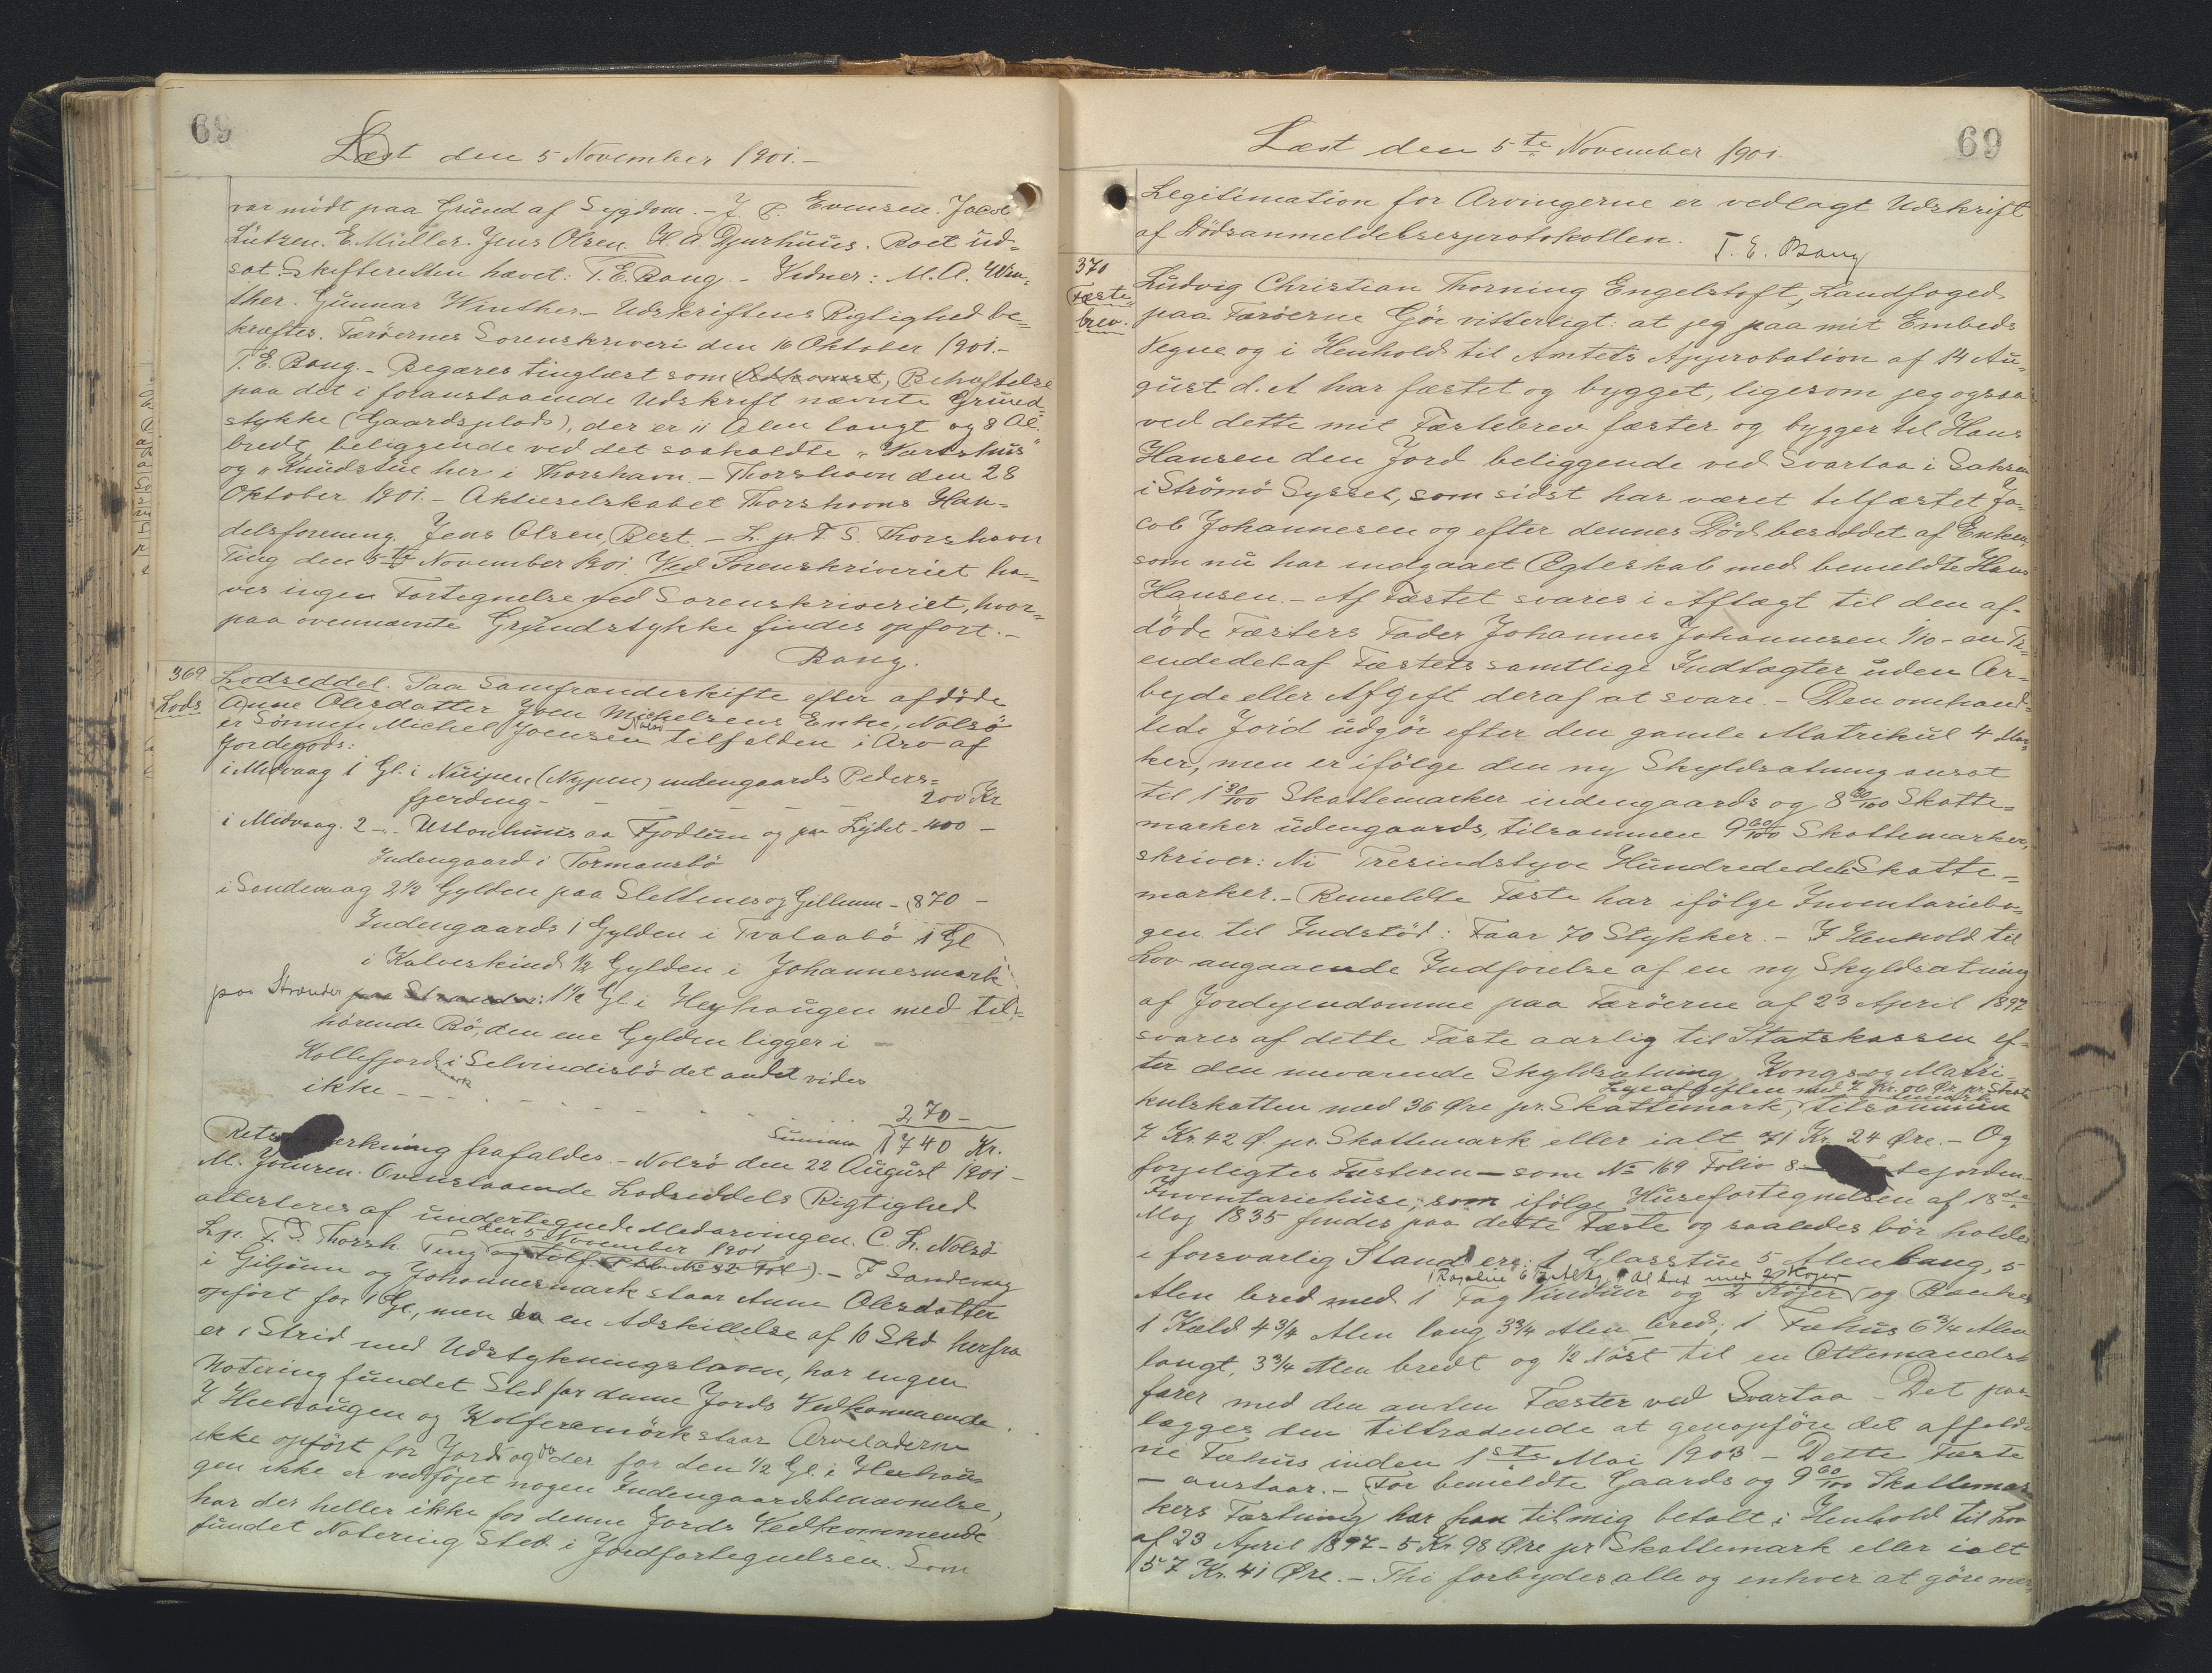 69
Læst den 5 November 1901.-
var mödt paa Grund af Sygdom. - J. P. Evensen. Jacob
Lützen. E. Müller. Jens Olsen. H. A. Djurhuus. Boet ud=
sat. Skifteretten hævet: T. E. Bang. - Vidner: M. A. Win=
ther. Gunnar Winther. - Udskriftens Rigtighed be=
kræftes. Færöernes Sorenskriveri den 16 Oktober 1901.-
T. E. Bang. - Begæres tinglæst som Adkomst, Behæftelse
paa det i foranstaaende Udskrift nævnte Grund=
stykke (Gaardsplads), der er 11 Alen langt og 8 Al.
bredt, beliggende ved det saakaldte "Vardshus"
og "Knudstue her i Thorshavn. - Thorshavn den 28
Oktober 1901. - Aktieselskabet Thorshavns Han=
delsforening. Jens Olsen, Best. - L. p. F. S. Thorshavn
Ting den 5te November 1901. Ved Sorenskriveriet ha=
ves ingen Fortegnelse ved Sorenskriveriet, hvor=
paa ovennævnte Grundstykke findes opfört. -
Bang.
369. Lodseddel. Paa Samfrændeskifte efter afdöde
Lods Anne Olesdatter Joen Michelsens Enke, Nolsö
er Sönnen Michel Joensen Nolsö tilfalden i Arv af
Jordegods:
i Midvaag 1 Gl. i Nüipen (Nypen) indengaards Peders=
fjerding - - - - - - 200 Kr
i Midvaag. 2 -"- Ustonhuus aa Fjodlum og paa Lydet - 400 -
Indengaard i Tormansbö
i Sandevaag 2 1/2 Gylden paa Slettenes og Gillium - 870 -
Indengaards 1 Gylden i Tvalaabö 1 Gl
i Kalveskind 1/2 Gylden i Johannesmark
paa Strænder paa Strænder: 1 1/2 Gl. i Heyhaugen med til=
hörende Bö, den ene Gylden ligger i
Kollefjord mark i Selvindisbö det andet vides
ikke - - - - - - - -
270 -
Summa 1740 Kr.
frafaldes. - Nolsö den 22 August 1901 -
M. Joensen. Ovenstaaende Lodseddels Rigtighed
attesteres af undertegnede Medarvingen. C. L. Nolsö
L. p. F. S. Thorsh. Ting den 5 November 1901 - I Sandevaag
i Giljum og Johannesmark staar Anne Olesdatter
opfört for 1 Gl., men da en Adskillelse af 10 Skd herfra
er i Strid med Udstykningsloven, har ingen
Notering fundet Sted for denne Jords Vedkommende.
I Heehaugen og Kolferemörk staar Arveladeren
ikke opfört for Jord og da der for den 1/2 Gl. i Heehau=
gen ikke er vedföjet nogen Indengaardsbenævnelse,
har der heller ikke for denne Jords Vedkommende
fundet Notering Sted i Jordfortegnelsen. Som
69
Læst den 5te November 1901.
Legitimation for Arvingerne er vedlagt Udskrift
af Dödsanmeldelsesprotokollen.
T. E. Bang
370
Fæste=
brev.
Ludvig Christian Thorning Engelstoft, Landfoged
paa Færöerne Gör vitterligt: at jeg paa mit Embeds
Vegne og i Henhold til Amtets Approbation af 14 Au=
gust d. A har fæstet og bygget, ligesom jeg ogsaa
ved dette mit Fæstebrev fæster og bygger til Hans
Hansen den Jord beliggende ved Svartaa i Saksen
i Strömö Syssel, som sidst har været tilfæstet Ja=
cob Johannesen og efter dennes Död besiddet af Enken,
som nu har indgaaet Ægteskab med bemeldte Hans
Hansen. - Af Fæstet svares i Aftægt til den af=
döde Fæsters Fader Johannes Johannesen 1/10 - en Ti=
endedel af Fæstets samtlige Indtægter uden Ar=
bejde eller Afgift deraf at svare. - Den omhand=
lede Jord udgör efter den gamle Matrikul 4 Mar=
ker, men er ifölge den ny Skyldsætning ansat
til 1 30/100 Skattemarker indengaards og 8 30/100 Skatte=
marker udengaards, tilsammen 9 60/100 Skattemarker,
skriver: Ni Tresindstyve Hundrededele Skatte=
marker. - Bemeldte Fæste har ifölge Inventariebo=
gen til Indstöd: Faar 70 Stykker. - I Henhold til
Lov angaaende Indförelse af en ny Skyldsætning
af Jordejendomme paa Færöerne af 23 April 1897
svares af dette Fæste aarlig til Statskassen ef=
ter den nuværende Skyldsætning Kongs- og Matri=
Lejeafgiften med 7 Kr. 06 Ør. pr. Skattemark
kulskatten med 36 Øre pr. Skattemark, tilsammen
7 Kr. 42 Ø. pr. Skattemark eller ialt 71 Kr. 24 Øre. - Og
forpligtes Fæsteren - som No 169 Folio 8
Inventariehuse, som ifölge Husefortegnelsen af 18de
Maj 1835 findes paa dette Fæste og saaledes bör holdes
i forsvarlig Stand ere: 1 Glasstue 5 Alen lang, 5
Alen bred med 1 Fag Vinduer og 2 Köjer og Bænke
1 Kæld 4 3/4 Alen lang 3 3/4 Alen bred; 1 Fæhus 6 3/4 Alen
langt, 3 3/4 Alen bredt og 1/2 Nöst til en Ottemands=
farer med den anden Fæster ved Svartaa. Det paa=
lægges den tiltrædende at genopföre det affald=
ne Fæhus inden 1ste Mai 1903. - Dette Fæste
- anstaar. - For bemeldte Gaards og 9 60/100 Skattemar=
kers Fæstning har han til mig betalt i Henhold til Lov
af 23 April 1897 - 5 Kr. 98 Øre pr Skattemark eller ialt
57 Kr. 41 Øre. - Thi forbydes alle og enhver at göre men